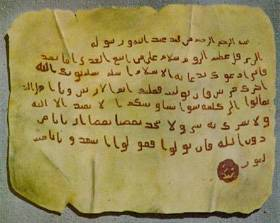 بسم الله الرحمن الرحيم من محمد عبد الله ورسوله
الى هرقل عظيم الروم سلام على من اتبع الهدى اما بعد
فانى ادعوك بدعاية الاسلام اسلم تسلم يوتك الله
اجرك مرتين فان توليت فعليك اثم الاريسين ويا اهل الكتاب
تعالوا الى كلمة سوا بيننا وبينكم الا نعبد الا الله
ولا نشرك به شيا ولا يتخذ بعضنا بعضا اربابا من
دون الله فان تولوا فقولوا اشهدوا بانا مسـ
لمون